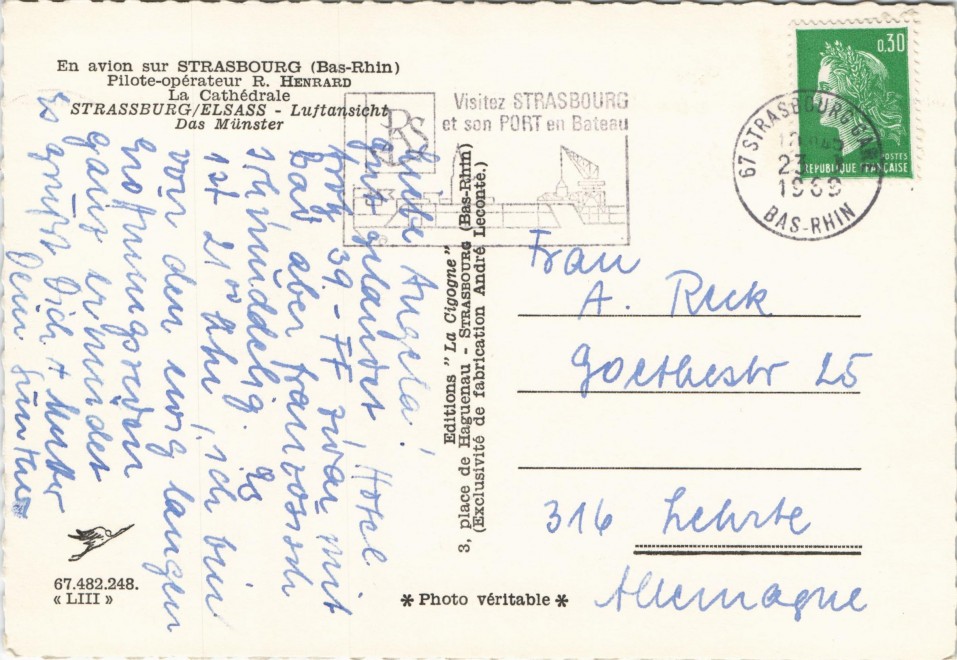 En avion sur STRASBOURG (Bas-Rhin)
Pilote-opérateur R. HENRARD
La Cathédrale
STRASSBURG/ELSASS - Luftansicht
Das Münster
RS
Visitez STRASBOURG
et son PORT en Bateau
67 STRASBOURG GARE
23 - 1
1969
BAS-RHIN
0,30
POSTES
REPUBLIQUE FRANÇAISE
Liebe Angela!
gut gelandet Hotel
trotz 39.- FF zwar mit
Bad aber französisch
schmuddelig. Es
ist 21 00 Uhr, ich bin
von den ewig langen
ganz ermüdet
Es grüßt Dich + Mutter
Dein Günther
Editions "La Cigogne"
3, place de Haguenau - STRASBOURG (Bas-Rhin)
(Exclusivité de fabrication André Leconte.)
Frau
A. Reck
Goethestr 25
316 Lehrte
Allemagne
67.482.248.
« LIII »
* Photo véritable *